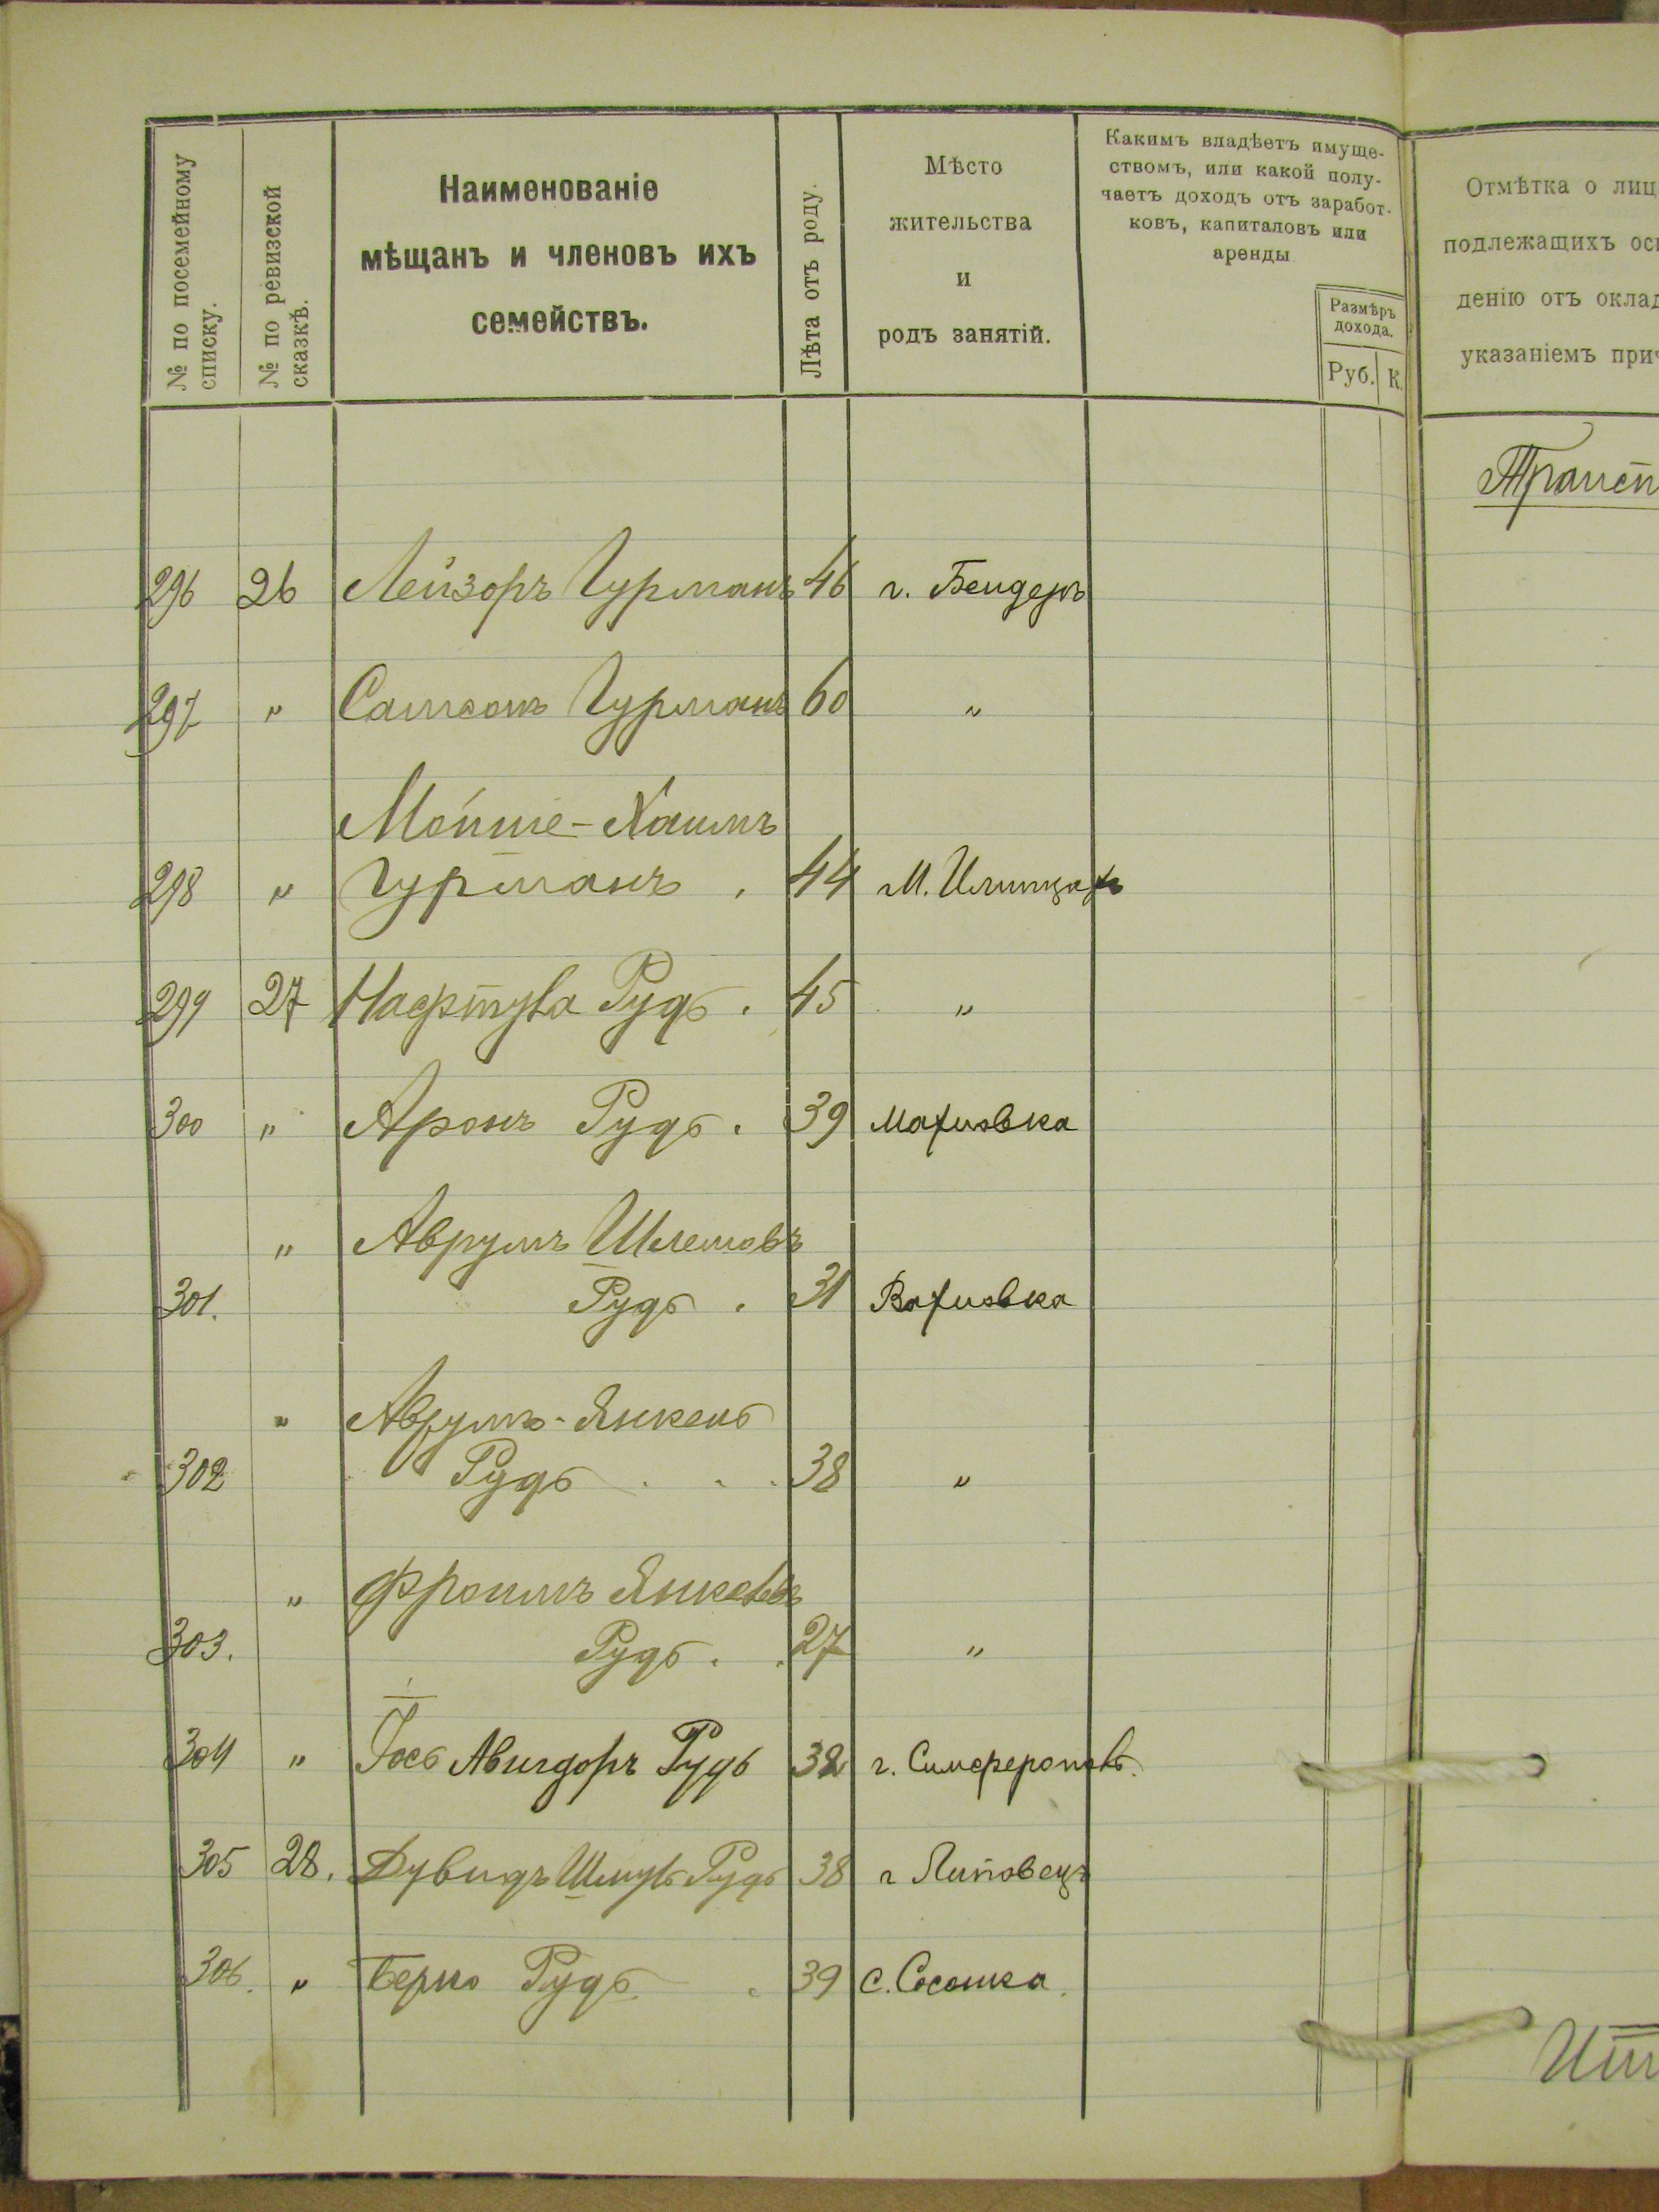 № по посемейному
списку.
№ по ревизской
сказкѣ.
Наименованіе
мѣщанъ и членовъ ихъ
семействъ.
Лѣта отъ роду.
Мѣсто
жительства
и
родъ занятій.
Какимъ владѣетъ имуще-
ствомъ, или какой полу-
чаетъ доходъ отъ заработ-
ковъ, капиталовъ или
аренды
Размѣръ
дохода.
Руб. К.
Отмѣтка о лиц
подлежащихъ осв
денію отъ оклад
указаніемъ прич
Трансп
296 26 Лейзоръ Гурманъ 46 г. Бендеръ
297 " Самсонъ Гурманъ 60 "
Мойше-Хаимъ
298 " Гурманъ . 44 М. Илинцахъ
299 27 Нафтула Рудь . 45 "
300 " Аронъ Рудь . 39 Махновка
" Аврумъ Шлемовъ
301. Рудь . 31 Вахновка
" Аврумъ-Янкель
302 Рудь . . . 38 "
" Фроимъ Янкелевъ
303. Рудь . . 27 "
304 " Іось Авигдоръ Рудь 32 г. Симферополь.
305 28. Дувидъ Шмуль Рудь 38 г Липовецъ
306. " Берко Рудь . 39 с. Сосонка.
Ит